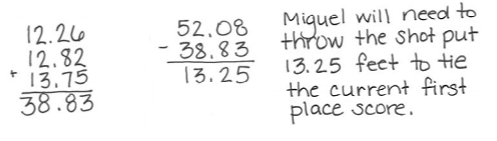 12.26
12.82
+ 13.75
38.83
52.08
- 38.83
13.25
Miguel will need to
throw the shot put
13.25 feet to tie
the current first
place score.